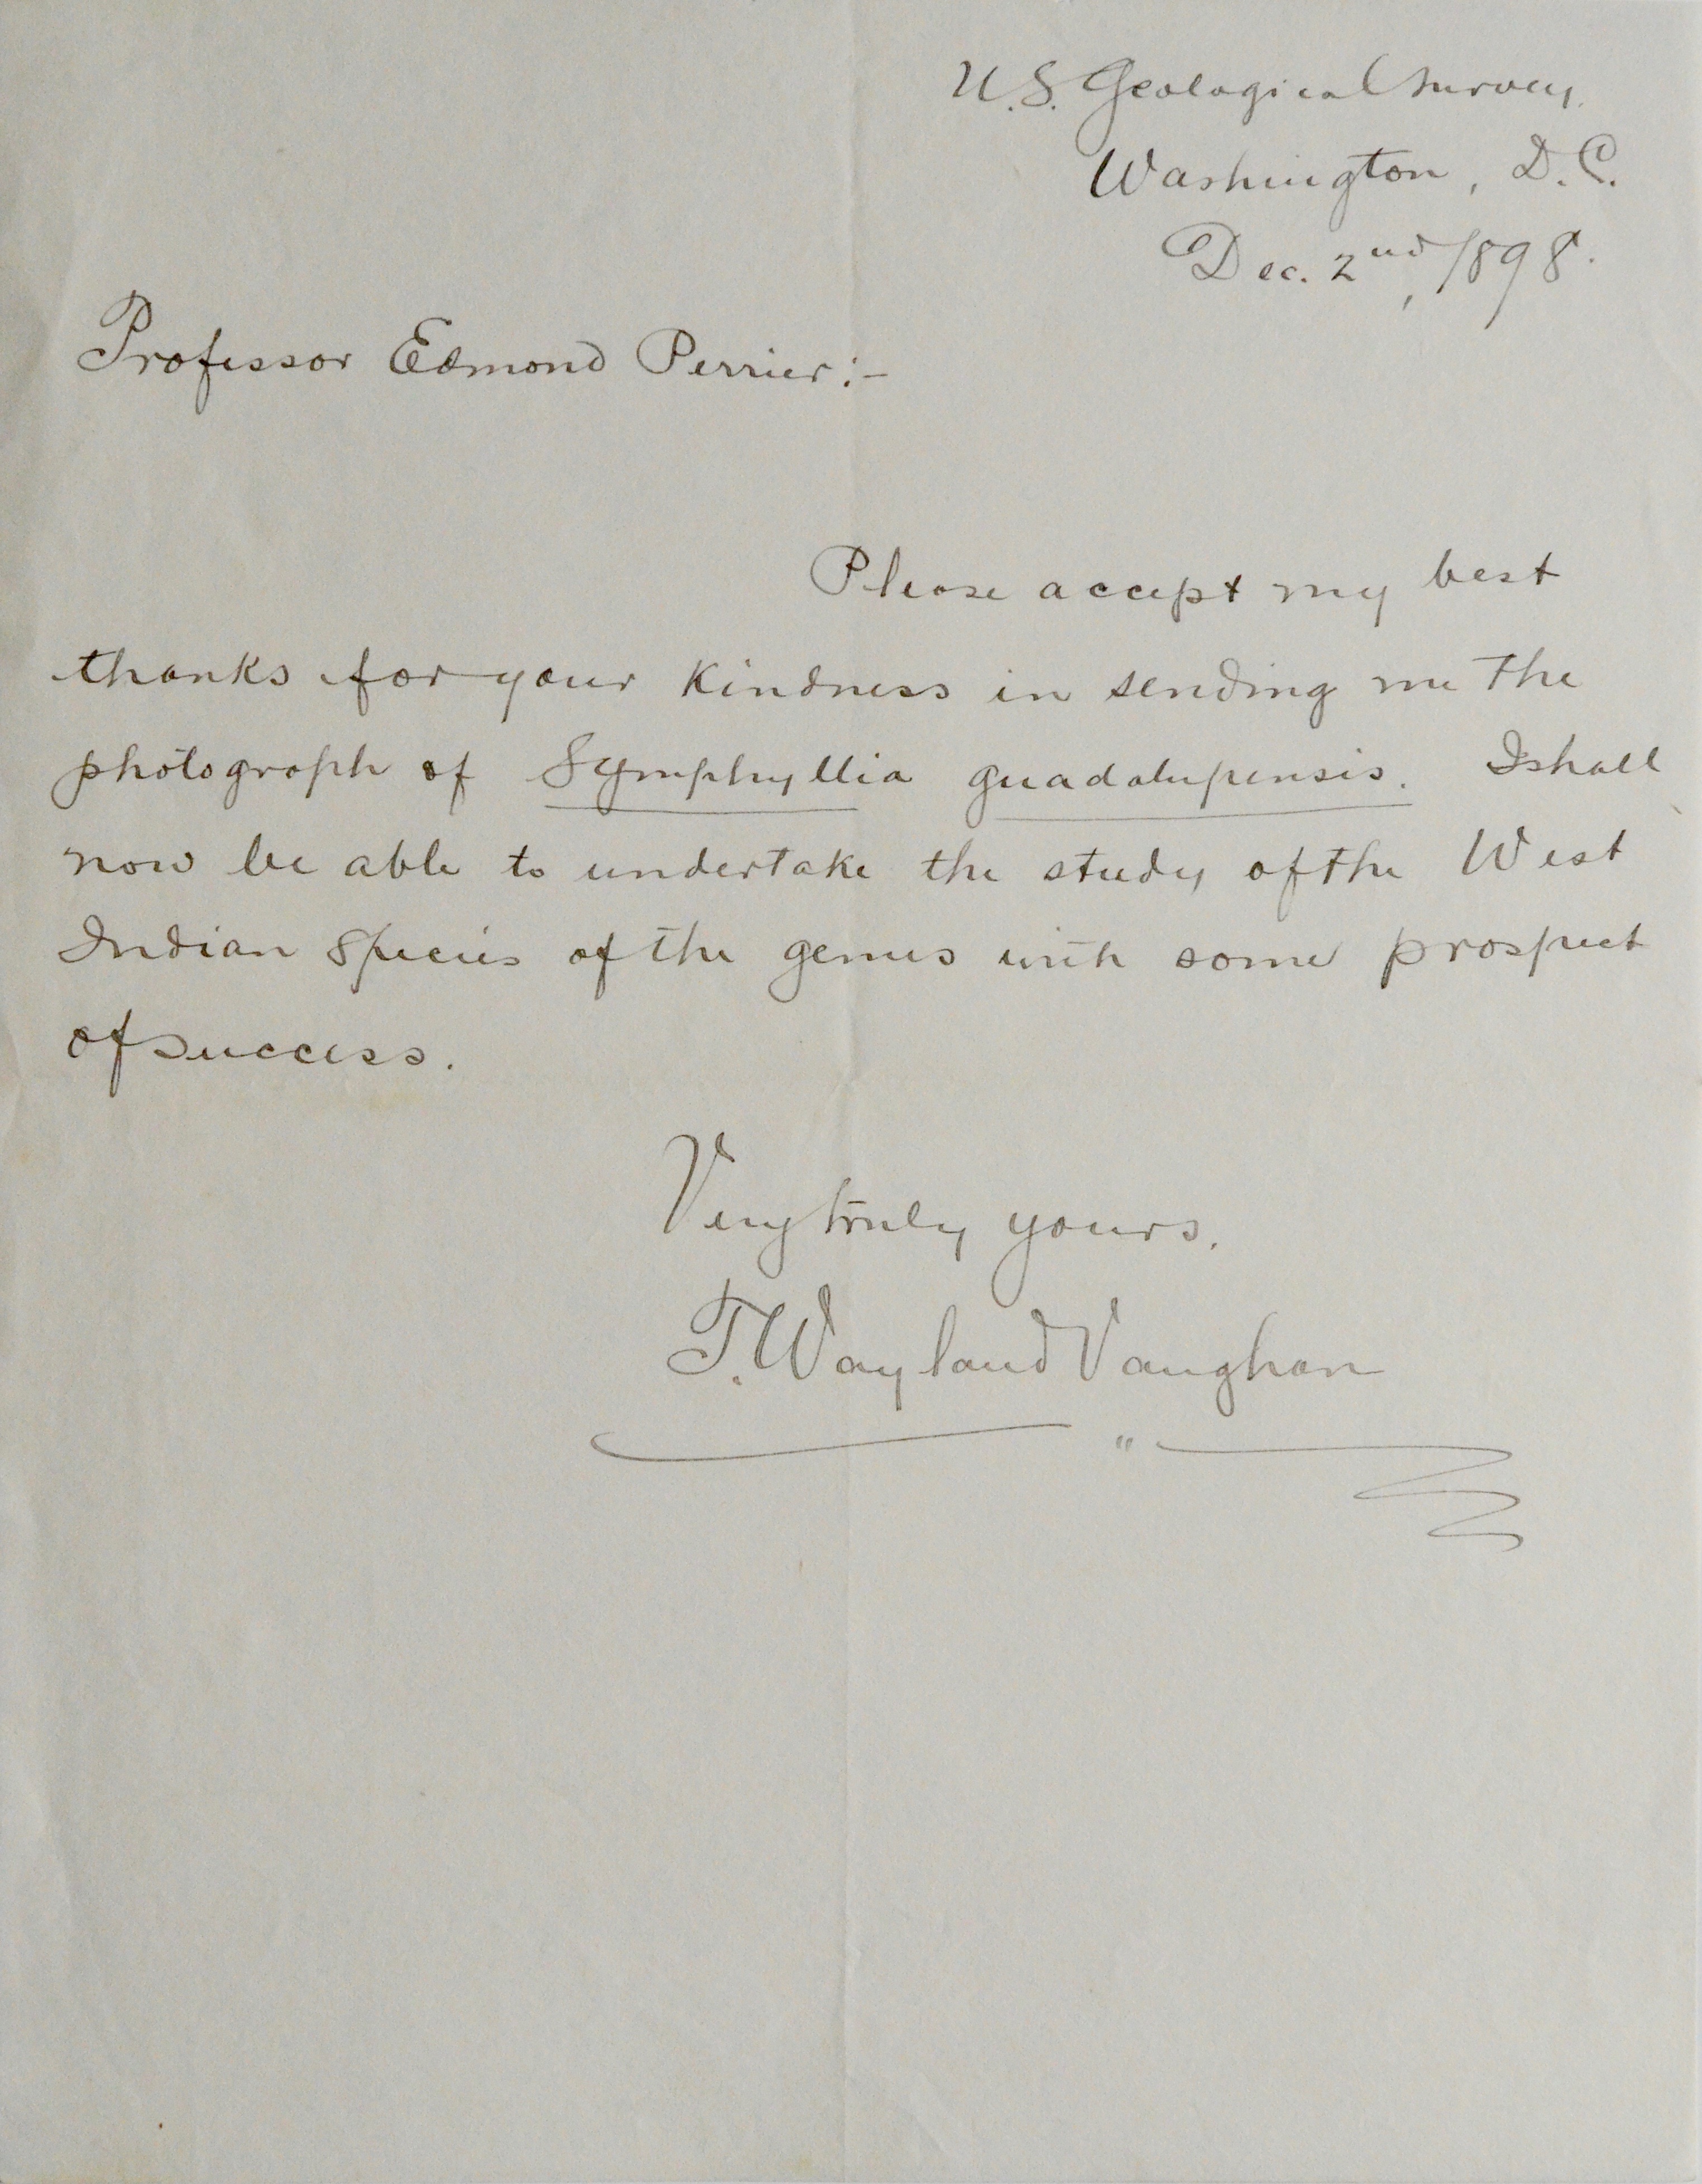 U.S. Geological Survey,
Washington, D.C.
Dec. 2nd, 1898.
Professor Edmond Perrier:-
Please accept my best
thanks for your kindness in sending me the
photograph of Symphyllia guadalupensis. I shall
now be able to undertake the study of the West
Indian species of the genus with some prospect
of success.
Very truly yours,
T. Wayland Vaughan